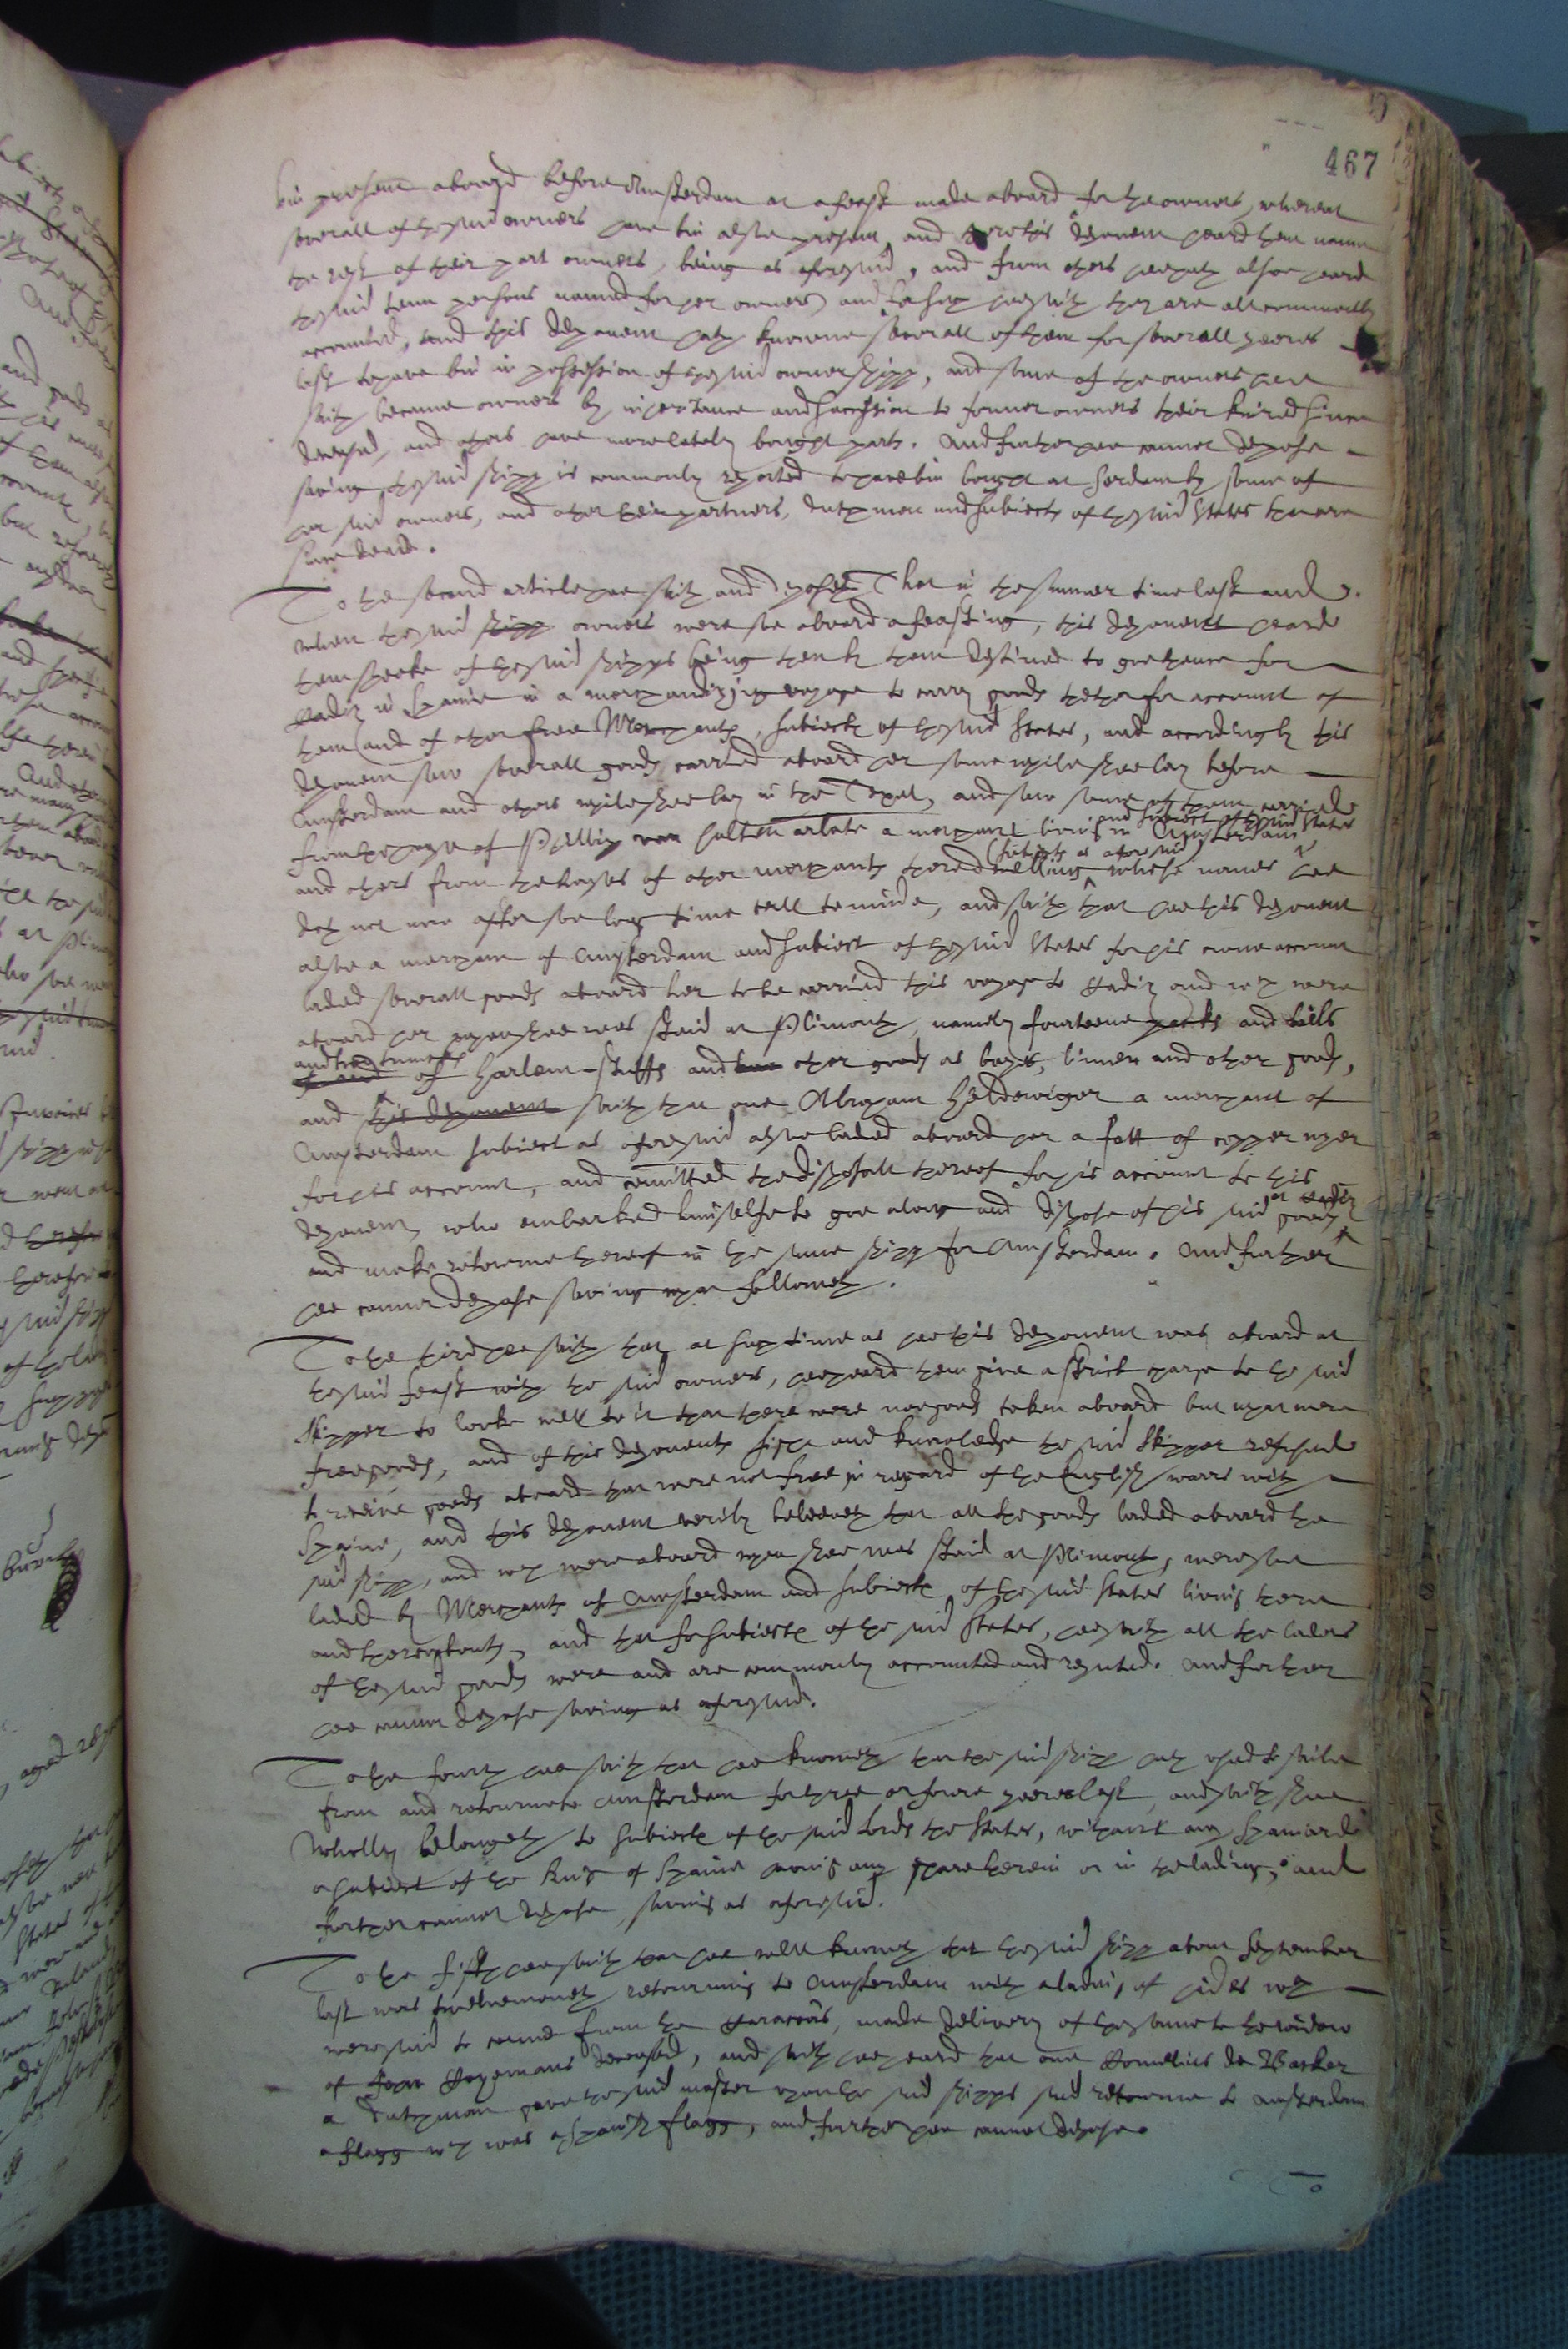 467
bin present aboard before Amsterdam at a feast made aboard for the owners, whereat
severall of the said owners have bin alsoe present, and there this deponent heard them name
the rest of their part owners, being as aforesaid, and from others hee hath alsoe heard
the said tenn persons named for her owners, and for such hee saith they are all commonly
accounted, and this deponent hath knowne severall of them for severall yeeres
last to have bin in possession of the said ownershipp, and some of the owners hee
saith became owners by inheritance and succession to former owners their kinred since
deceased, and others have more lately bought parts. And further hee cannot depose
saving the said shipp is commonly reported to have bin bought at Serdam by some of
her said owners, and other their partners, dutchmen and subiects of the said States that are
since dead.
To the second article hee saith and deposeth That in the summer time last and
when the said shipp owners were soe aboard a feasting, this deponent heard
them speake of the said shipps being then by them destined to goe thence for
Cadiz in Spaine in a merchandizing voyage to carry goods thether for account of
them and of other free Merchants, subiects of the said States, and accordingly this
deponent saw severall goods carried aboard her some while shee lay before
Amsterdam and others while shee lay in the Texel, and saw some of them carried
from the house of Phillip van hulten arlate a merchant living in Amsterdam
and subiect of the said States
and others from the houses of other merchants there dwelling whose names hee
(subiects as aforesaid
doth not now after soe long time call to minde, and saith that hee this deponent
alsoe a merchant of Amsterdam and subiect of the said States for his owne account
laded severall goods aboard her to be carried this voyage to Cadiz and which were
aboard her when shee was staid at Plimouth, namely fourteene packs and bales
and
of Harlem stuffs and other goods as bayes, linnen and other goods,
and this deponent saith that one Abraham Heldewiger a merchant of
Amsterdam subiect as aforesaid alsoe laded aboard her a fatt of copper wyer
for his account, and comitted the disposall thereof for his account to this
deponent, who embarked himselfe to goe along and dispose of his said goods
at Cadiz
and make retourne thereof in the same shipp for Amsterdam. And further
hee cannot depose saving what followeth.
To the third hee saith that at such time as hee this deponent was aboard at
the said feast with the said owners, hee heard them give a strict charge to the said
Skipper to looke well to it that there were noe goods taken aboard but what were
free goods, and of this deponents sight and knowledge the said Skipper refused
to receive goods aboard that were not free in regard of the English warrs with
Spaine, and this deponent verily beleeveth that all the goods laded aboard the
said shipp, and which were aboard when shee was staid at Plimouth, were soe
laded by Merchants of Amsterdam and subiects of the said States living there
and thereabouts, and that for subiects of the said States, hee saith all the laders
of the said goods were and are commonly accounted and reputed. And further
hee cannot depose saving as aforesaid.
To the fourth hee saith that hee knoweth that the said shipp hath used to saile
from and retourne to Amsterdam for three or foure yeeres last, and saith shee
wholly belongeth to subiects of the said Lords the States, without any Spaniard
or subiect of the King of Spaine having any share therein or in the lading, and
further cannot depose, saving as aforesaid.
To the fifth hee saith that hee well knoweth that the said shipp about September
last was twelvemoneth retourning to Amsterdam with a lading of hides which
were said to come from the Caraccas, made delivery of the same to the widow
of Hagemans deceased, and saith hee heard that one Cornelius de Backer
a dutchman gave the said master upon the said shipps said retourne to Amsterdam
a flagg which was a Spanish flagg, and further hee cannot depose.
To